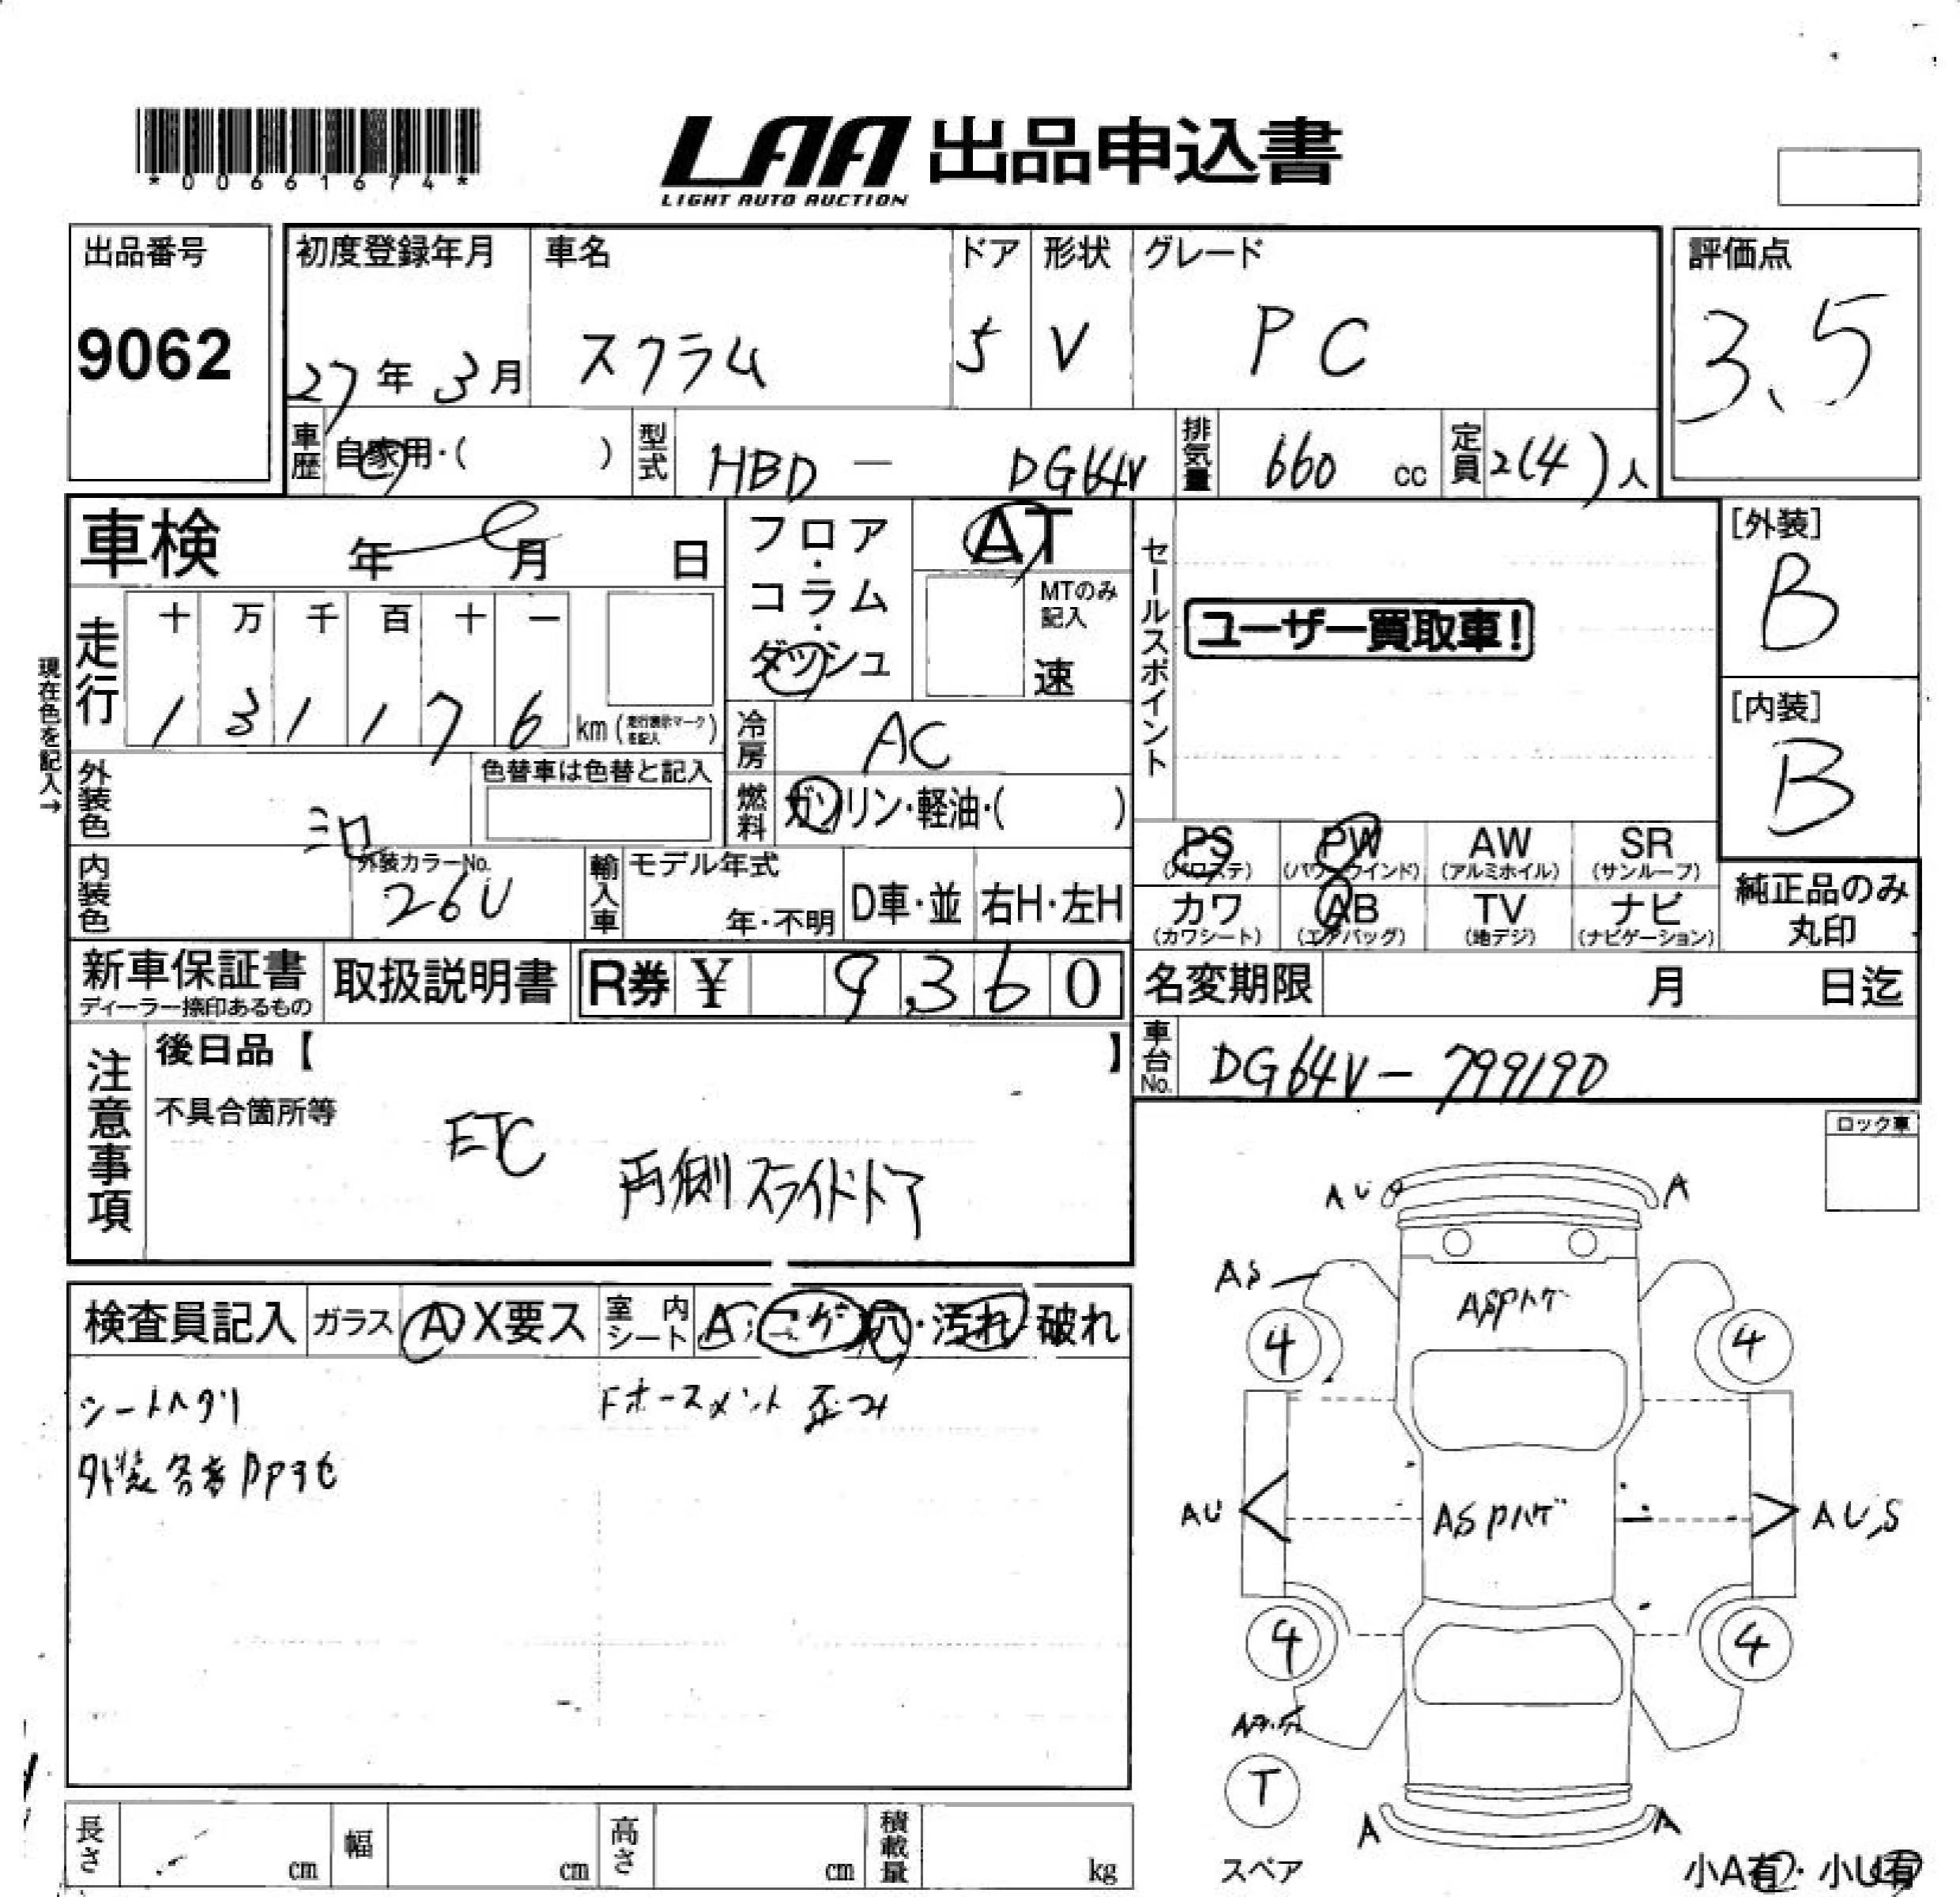 *00661674*
LAA 出品申込書
LIGHT AUTO AUCTION
出品番号
9062
初度登録年月
27年 3月
車名
スクラム
ドア
5
形状
V
グレード
PC
評価点
3.5
車歴
自家用・( )
型式
HBD - DG64V
排気量
660 cc
定員
2(4)人
車検 年 月 日
フロア・コラム・ダッシュ
AT
MTのみ記入
速
セールスポイント
ユーザー買取車!
[外装]
B
[内装]
B
現在色を記入→
走行
十 万 千 百 十 一
1 3 1 1 7 6
km (走行表示マークを記入)
冷房
AC
燃料
ガソリン・軽油・( )
外装色
シロ
色替車は色替と記入
内装色
外装カラーNo.
26U
輸入車
モデル年式
年・不明
D車・並
右H・左H
PS (パワステ)
PW (パワーウインド)
AW (アルミホイル)
SR (サンルーフ)
カワ (カワシート)
AB (エアバッグ)
TV (地デジ)
ナビ (ナビゲーション)
純正品のみ丸印
新車保証書
ディーラー捺印あるもの
取扱説明書
R券 ¥ 9,360
名変期限 月 日迄
車台No.
DG64V-799190
注意事項
後日品【 】
不具合箇所等
ETC
両側スライドドア
ロック車
検査員記入
ガラス
A X要ス
室内シート
A・コゲ・穴・汚れ・破れ
シートヘタリ
Fホースメント歪み
AU
A
AS
ASPハゲ
4
4
AU
ASPハゲ
AU,S
4
4
T
スペア
A
A
小A有・小U有
長さ cm
幅 cm
高さ cm
積載量 kg